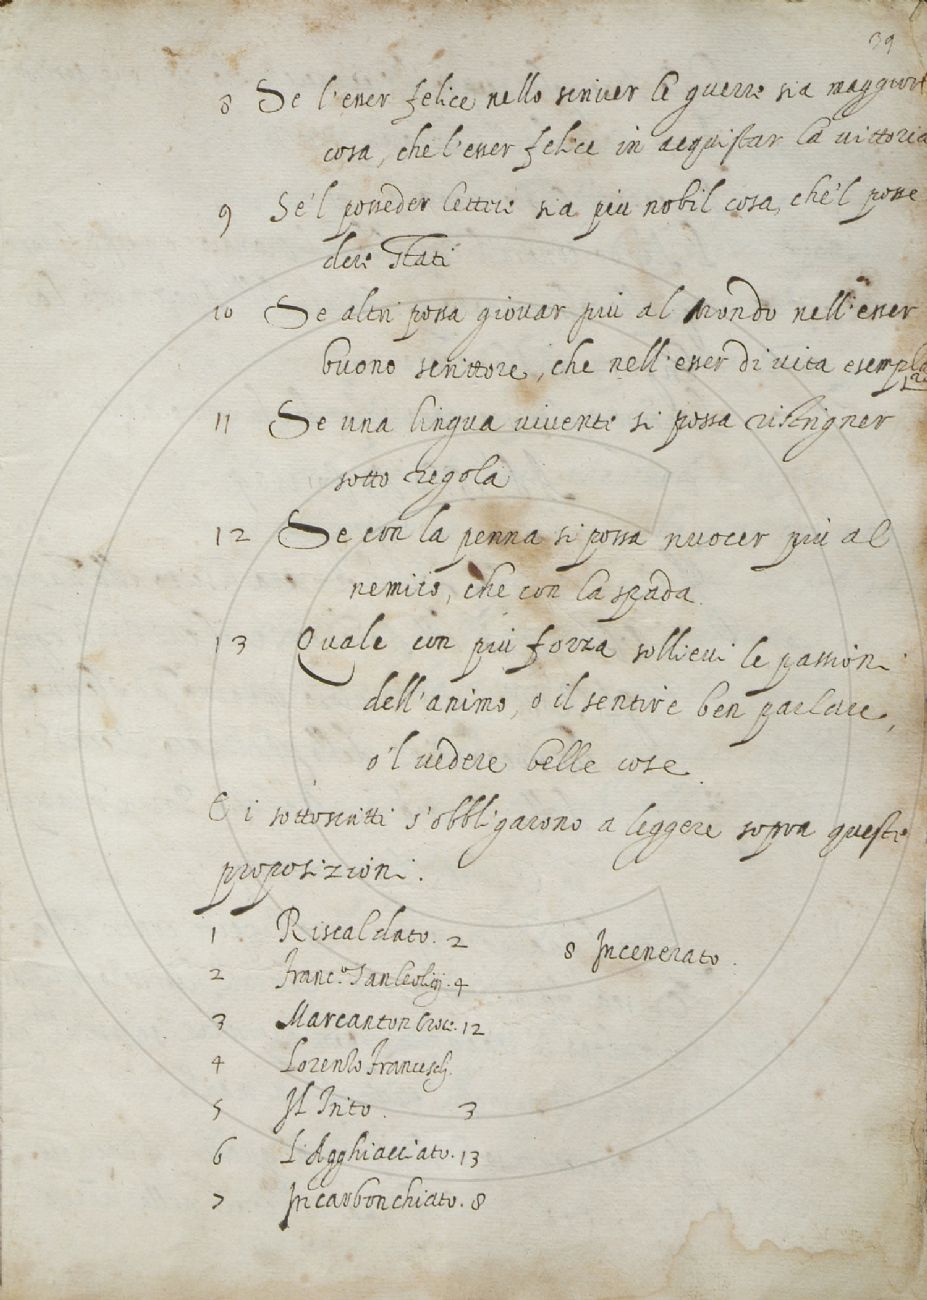 39
8 Se l'esser felice nello scriver le guerre sia maggior
cosa, che l'esser felice in acquistar la vittoria
9 Se'l posseder lettere sia più nobil cosa, che'l posse
dere stati
10 Se altri possa giovar più al mondo nell'esser
buono scrittore, che nell'esser di vita esempla
re
11 Se una lingua vivente si possa ristrigner
sotto regola
12 Se con la penna si possa nuocer più al
nemico, che con la spada.
13 Quale con più forza sollievi le passioni
dell'animo, o il sentire ben parlare,
o'l vedere belle cose.
E i sottoscritti s'obbligarono a leggere sopra queste
proposizioni.
1 Riscaldato. 2
8 Incenerato.
2 Franc.o Sanleolini. 4
3 Marcanton Croce. 12
4 Lorenzo Franceschi.
5 Il Trito. 3
6 L'Agghiacciato. 13
7 Incarbonchiato. 8